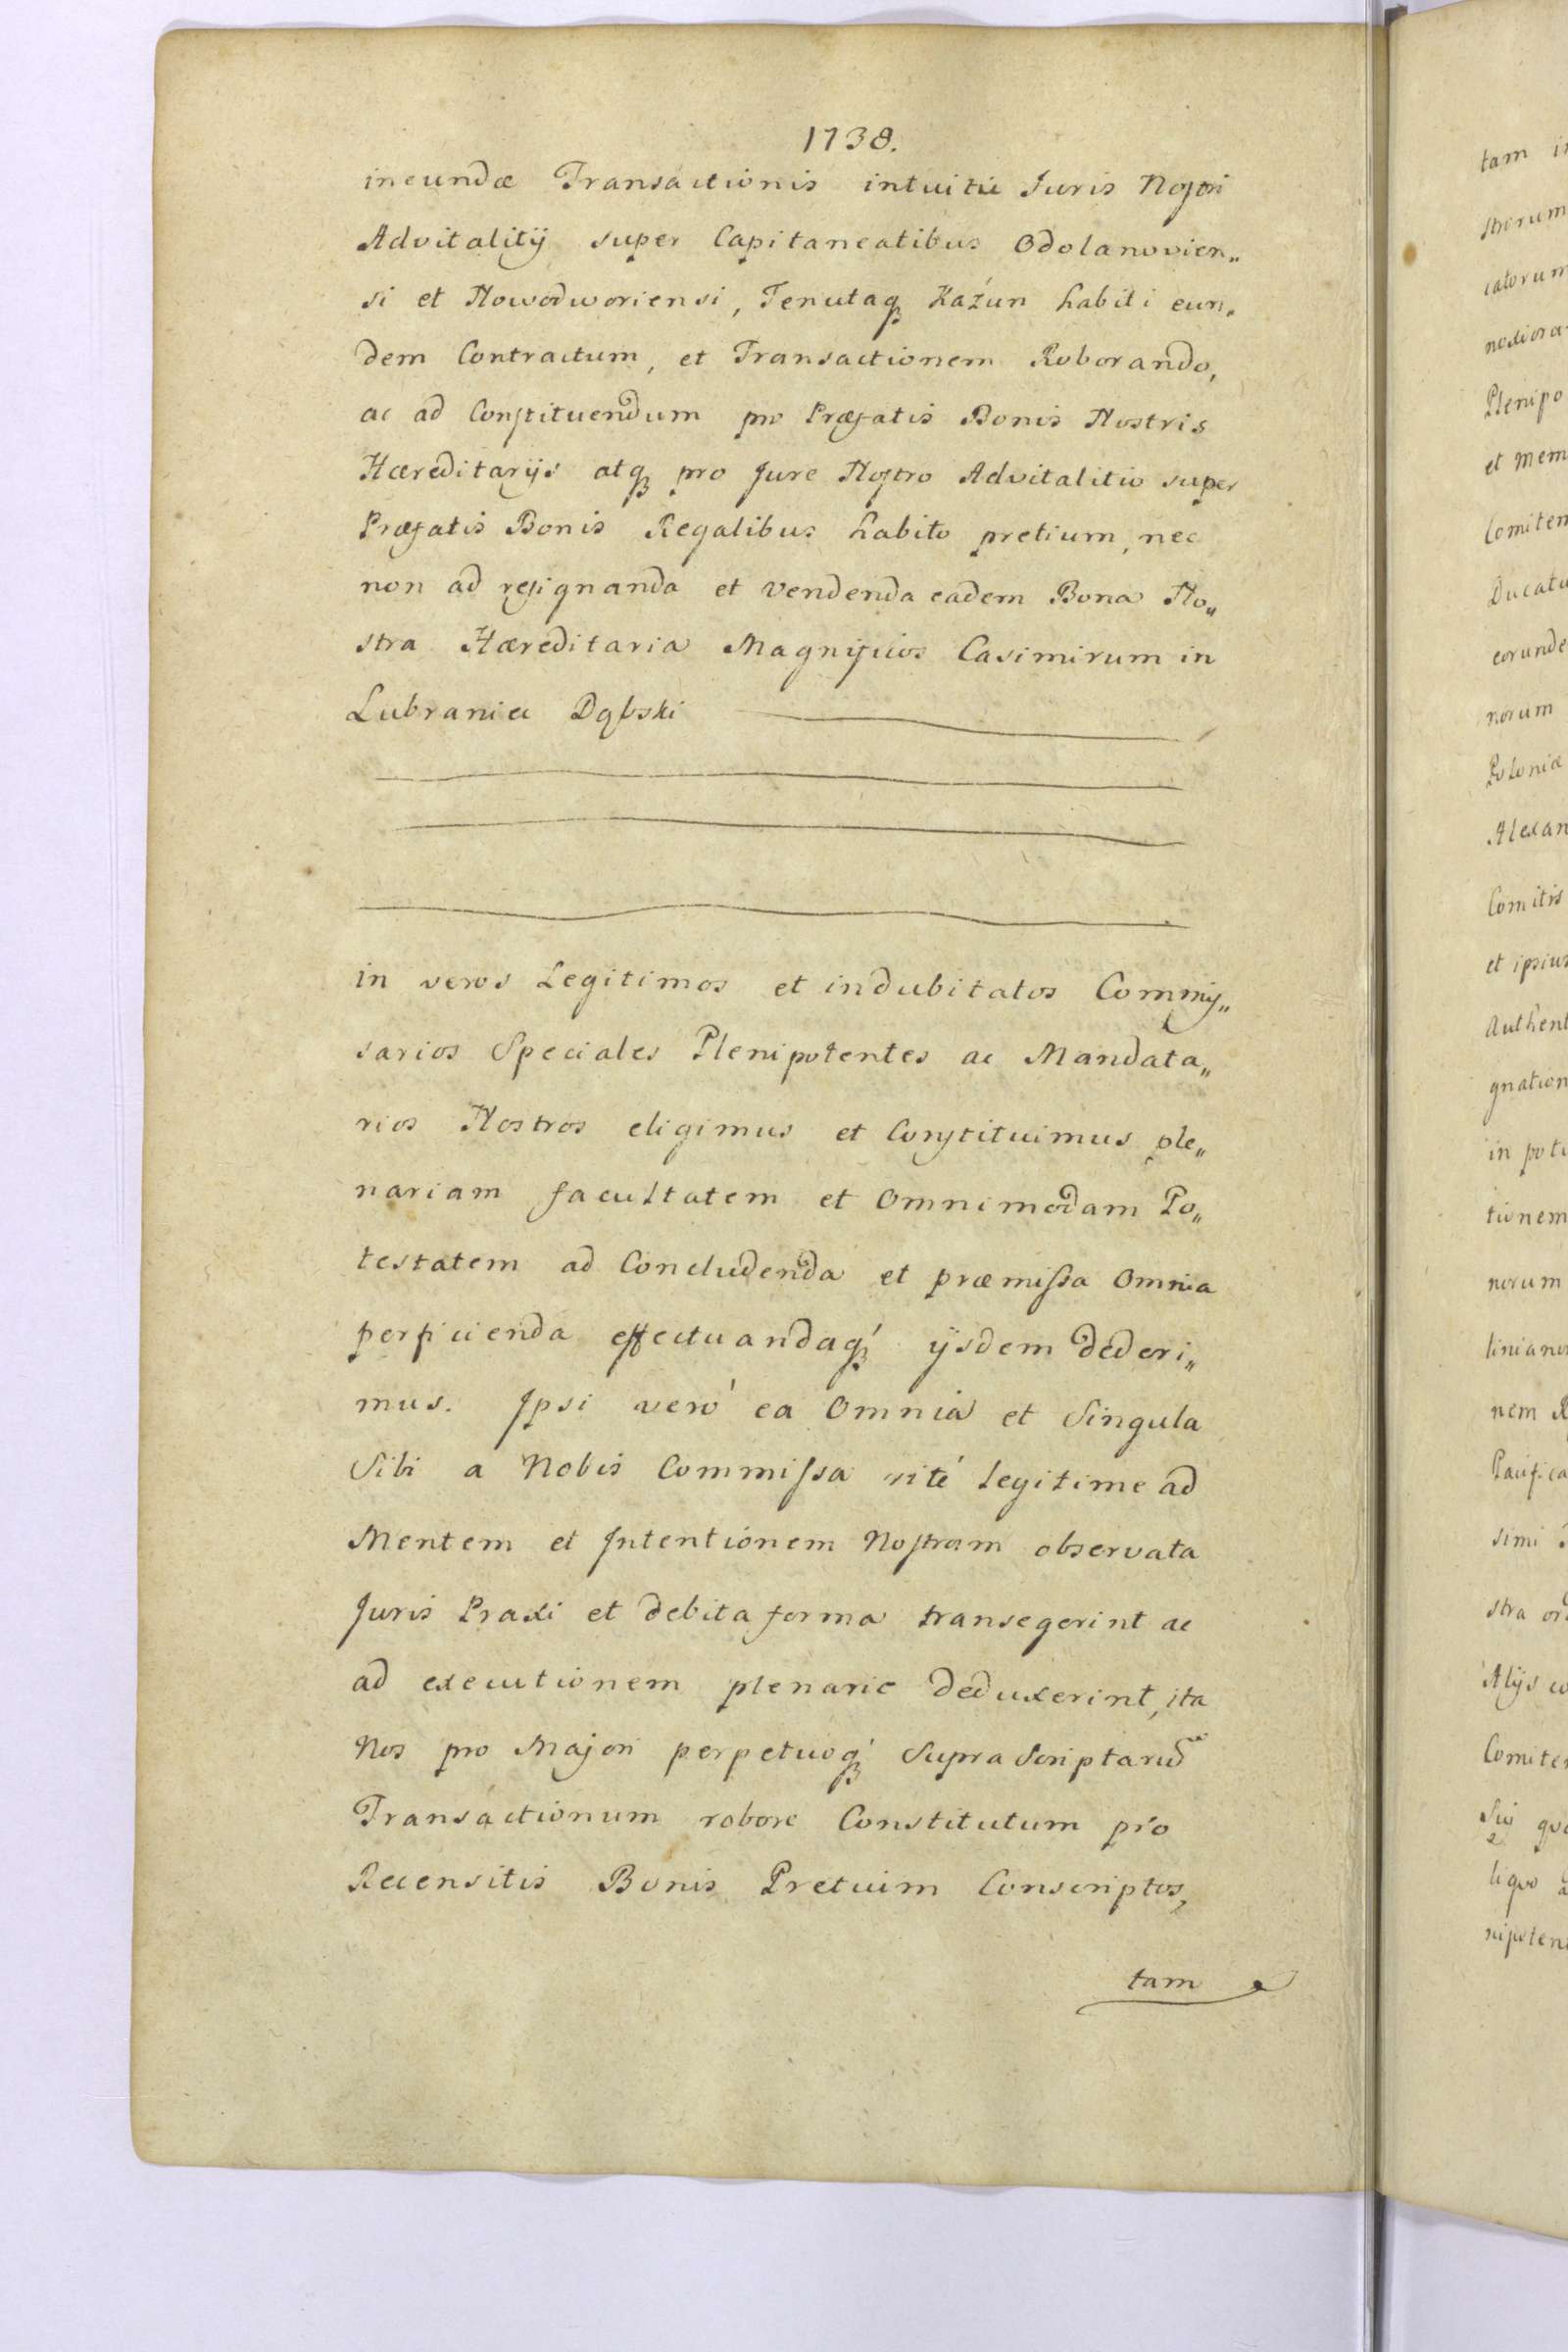 1738.
ineundæ Transactionis intuitu Juris Nostri
Advitalitij super Capitaneatibus Odolanovien„
si et Nowodworiensi, Tenutaq́ꝫ Kaźun habiti eun„
dem Contractum, et Transactionem Roborando,
ac ad Constituendum pro Præfatis Bonis Nostris
Hæreditarijs atqꝫ pro Jure Nostro Advitalitio super
Præfatis Bonis Regalibus habito pretium, nec
non ad resignanda et vendenda eadem Bona No„
stra Hæreditaria Magnificos Casimirum in
Lubraniec Dąbski
in veros Legitimos et indubitatos Commis„
sarios Speciales Plenipotentes ac Mandata„
rios Nostros eligimus et Constituimus ple„
nariam facultatem et Omnimodam Po„
testatem ad Concludenda et præmissa Omnia
perficienda effectuandaq́ꝫ ijsdem dederi„
mus. Ipsi veró ea Omnia et Singula
Sibi a Nobis Commissa rité legitime ad
Mentem et Intentionem Nostram observata
Juris Praxi et debita forma transegerint ac
ad executionem plenarie deduxerint, ita
Nos pro Majori perpetuoq́ꝫ Supra Scriptarũ
Transactionum robore Constitutum pro
Recensitis Bonis Pretium Conscriptos,
tam
tam
strorum
catorum
Plenipo
et Mem
Comitem
Ducatu
eorunde
norum
Poloniæ
Alexan
Comitis
et ipsius
Authent
gnation
in poti
tionem
norum
nem
Pacifica
simi
stra
Alijs
Comite
liquo
nipoten